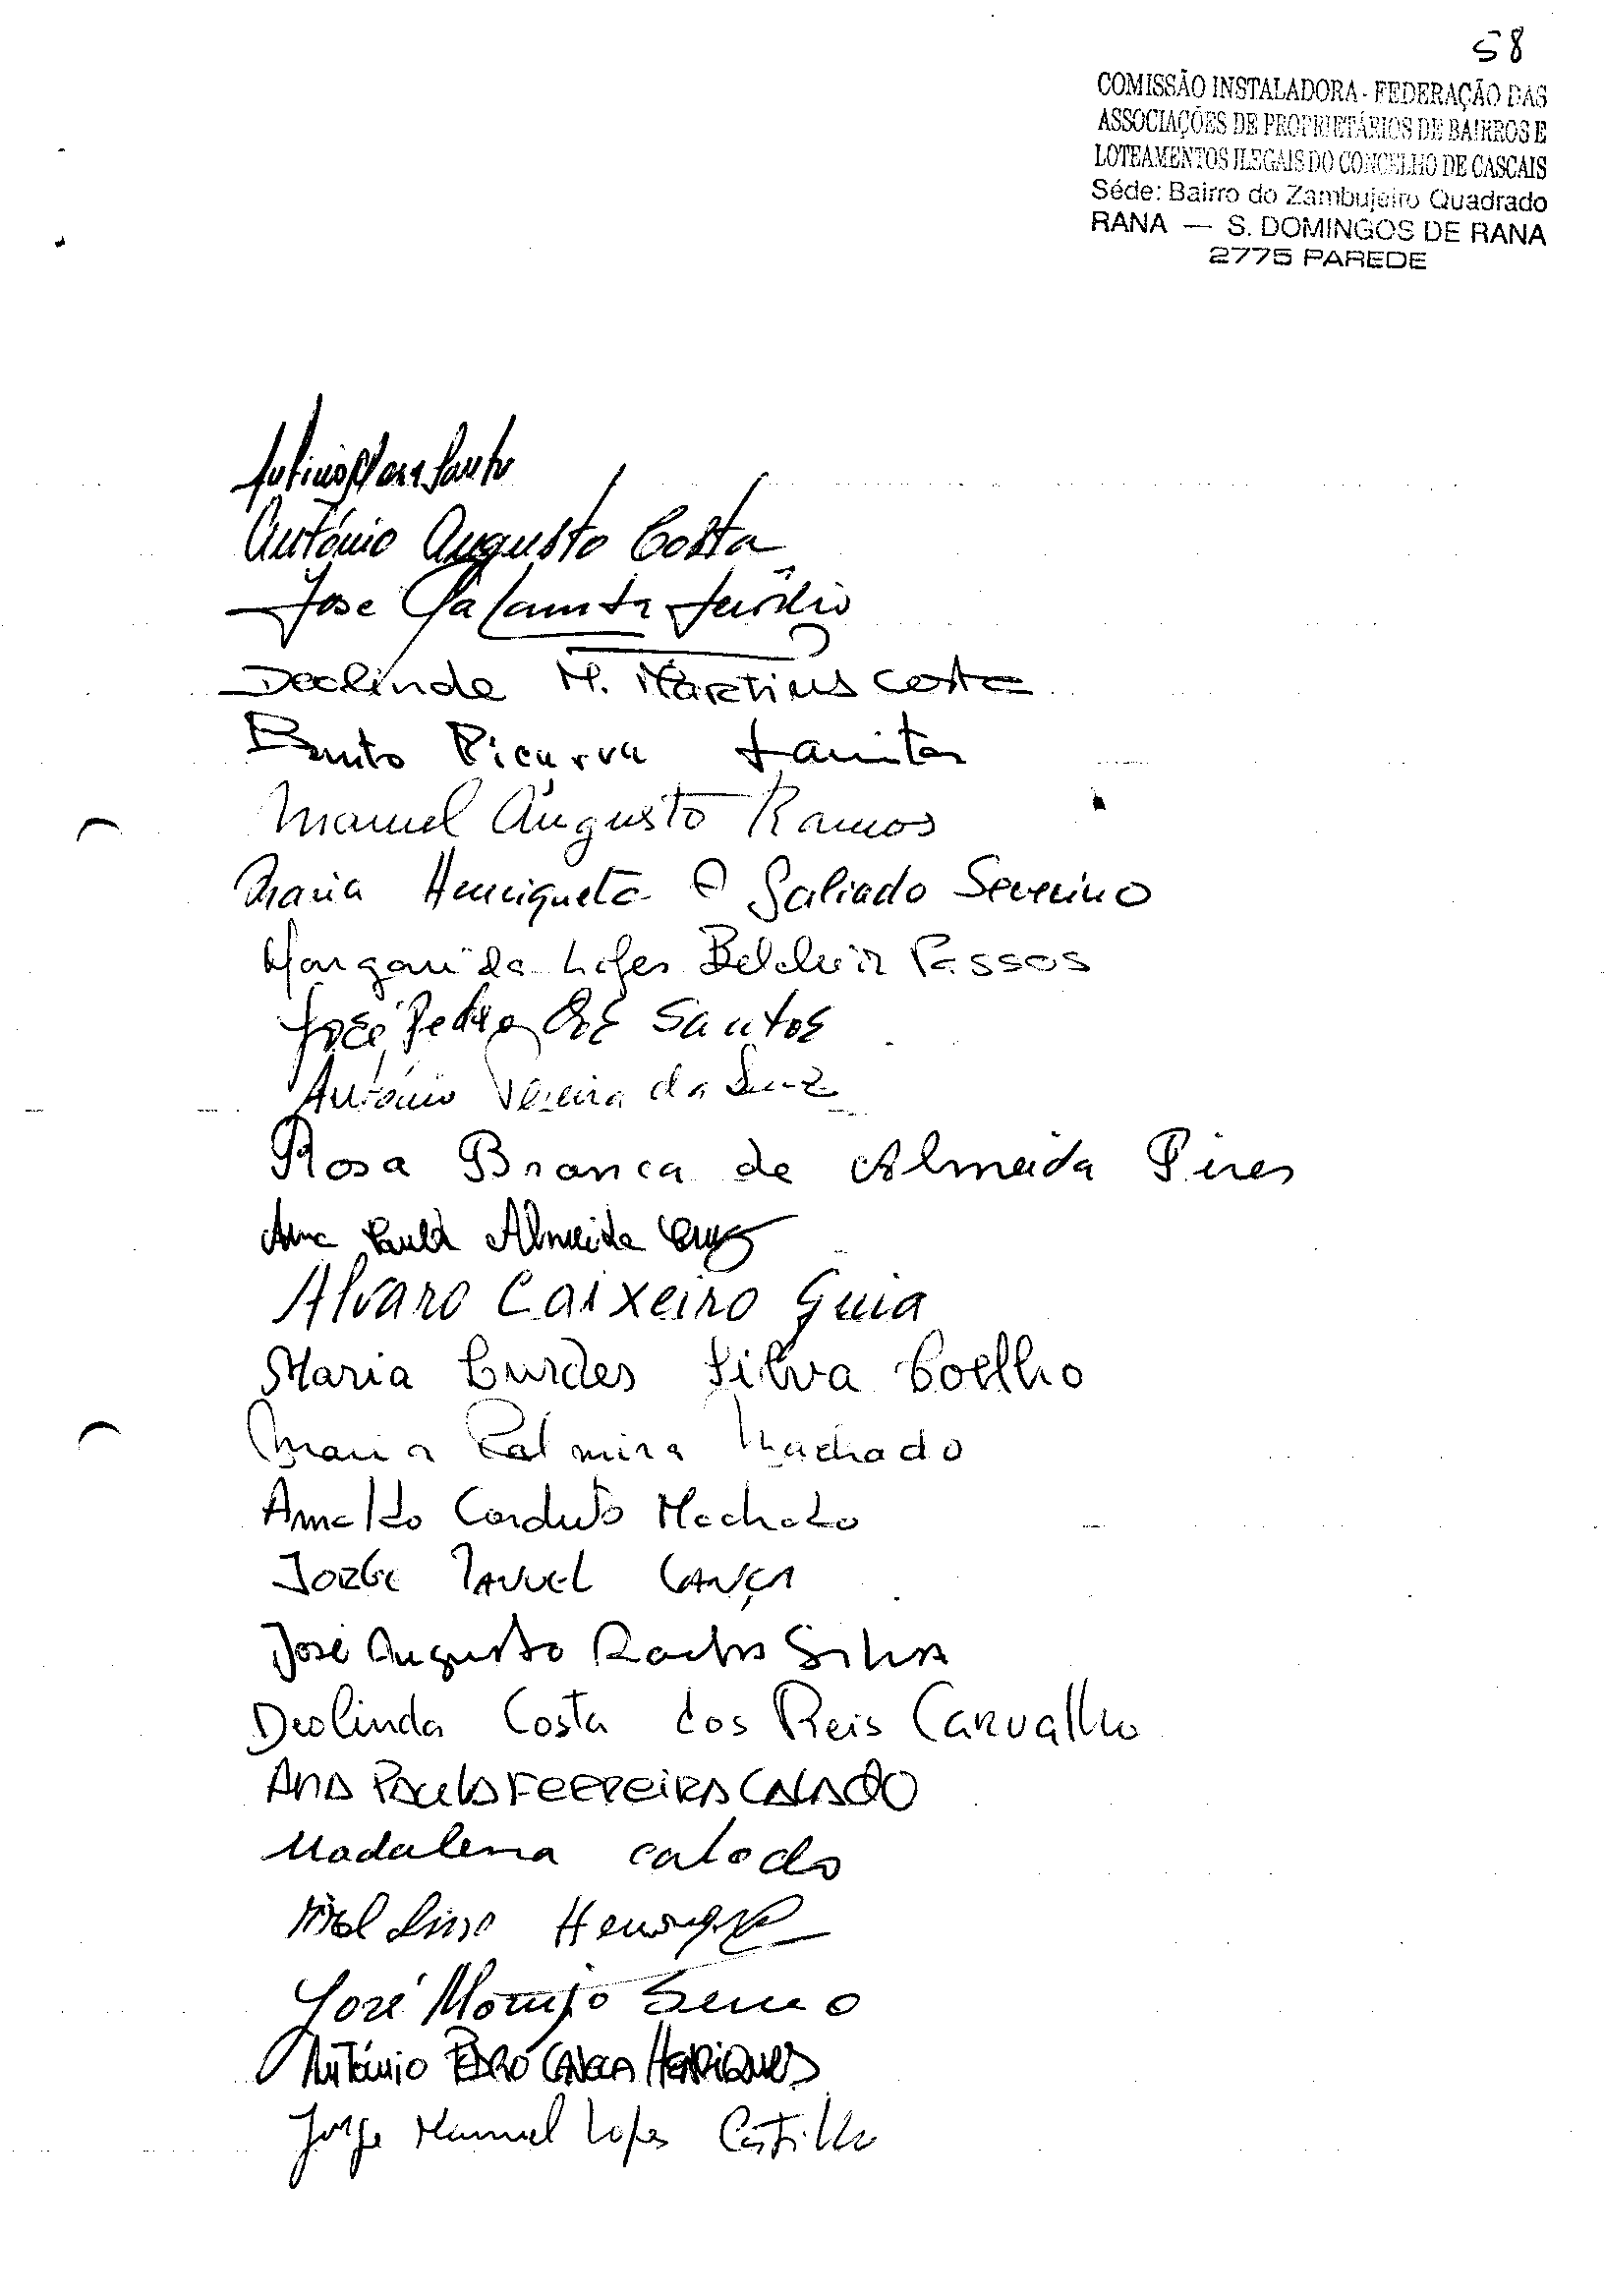 58
COMISSÃO INSTALADORA - FEDERAÇÃO DAS
ASSOCIAÇÕES DE PROPRIETÁRIOS DE BAIRROS E
LOTEAMENTOS ILEGAIS DO CONCELHO DE CASCAIS
Séde: Bairro do Zambujeiro Quadrado
RANA — S. DOMINGOS DE RANA
2775 PAREDE
António Augusto Costa
José
Deolinda M. Martins Costa
Bento
Manuel Augusto Ramos
Maria Henriqueta Galiado Severino
Margarida Lopes Belchior Passos
José Pedro Santos
António Pereira da
Rosa Branca de Almeida Pires
Ana Paula Almeida Cruz
Alvaro Caixeiro Guia
Maria Lurdes Silva Coelho
Maria Palmira Machado
Arnaldo Machado
Jorge Manuel Cança
José Augusto Rocha Silva
Deolinda Costa dos Reis Carvalho
ANA PAULA FERREIRA CALADO
Madalena Calado
José Serrano
António PEDRO CANECA HENRIQUES
Jorge Manuel Lopes Castilho